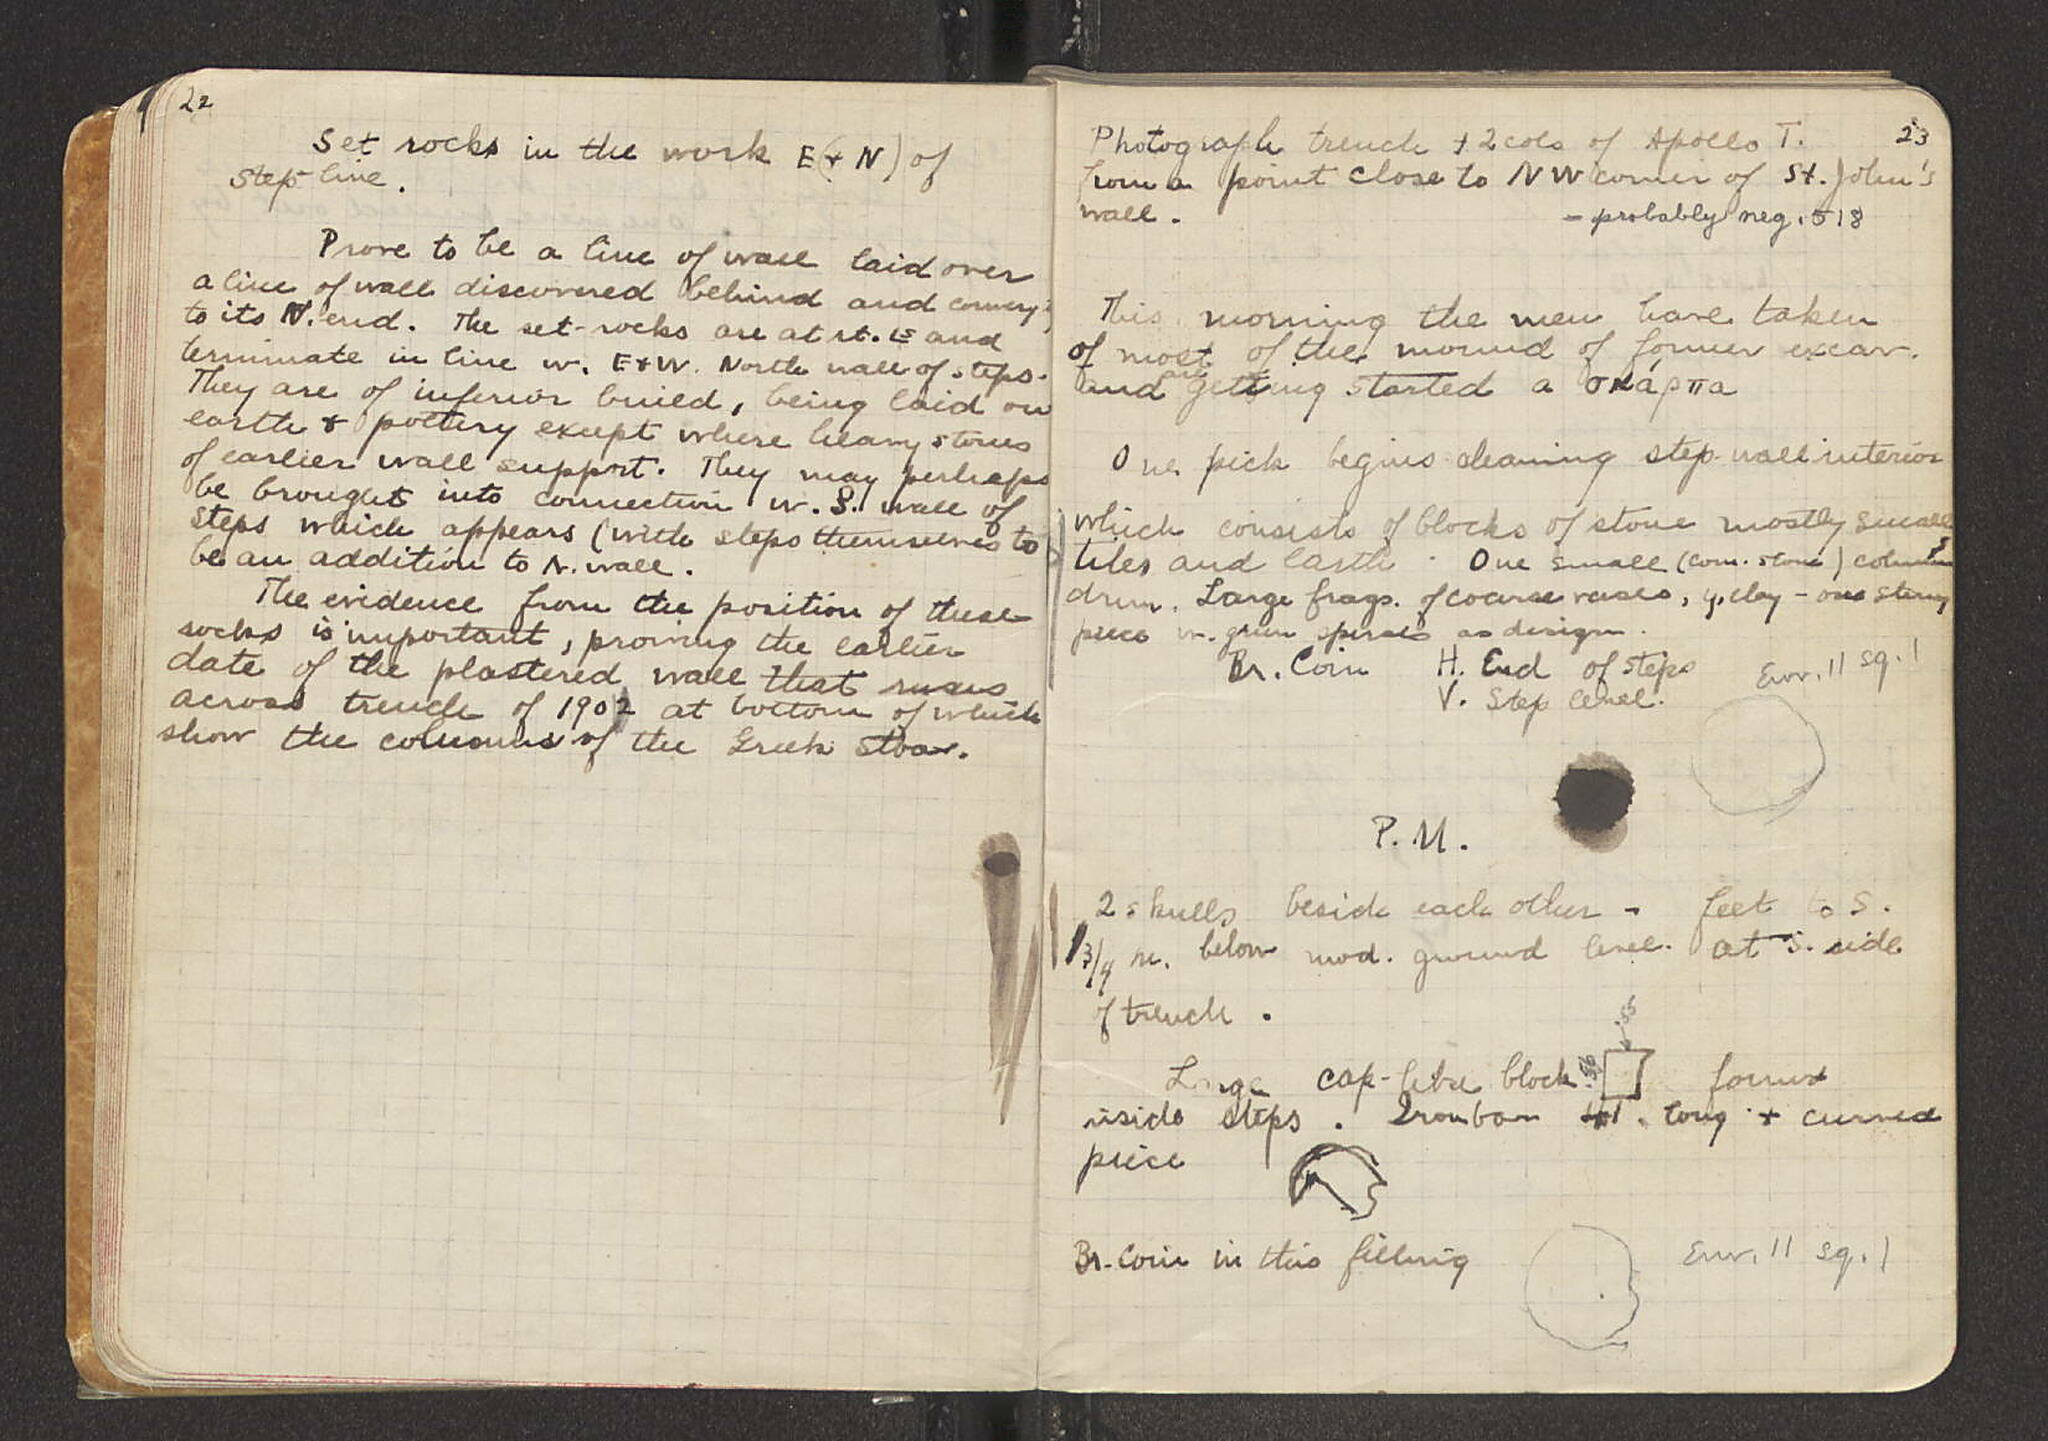 22
Set rocks in the work E (+ N) of
step line.
Prove to be a line of wall laid over
a line of wall discovered behind and
to its N. end. The set-rocks are at rt. and
terminate in line w. E+W. North wall of steps.
They are of inferior build, being laid on
earth + pottery except where heavy stones
of earlier wall support. They may perhaps
be brought into connection w. S. wall of
steps which appears (with steps themselves to
be an addition to N. wall.
The evidence from the position of these
rocks is important, proving the earlier
date of the plastered wall that runs
across trench of 1902 at bottom of which
show the columns of the Greek stoa.
23
Photograph trench + 2 cols of Apollo T.
from a point close to NW corner of St. John's
wall.
- probably neg. 518
This morning the men have taken
of most of the mound of former excav.
and are getting started a σκάρπα
One pick begins cleaning step wall interior
which consists of blocks of stone mostly small
tiles and earth. One small (com. stone) column
drum. Large frags. of coarse vases, y. clay - one
piece w. green spirals as design.
Br. Coin H. End of steps
V. Step level.
Env. 11 sq. 1
P.M.
2 skulls beside each other - feet to S.
1 3/4 m. below mod. ground level. at S. side
of trench.
.55
.56
Large cap-like block found
inside steps. Iron bar long + curved
piece
Br. Coin in this filling
Env. 11 sq. 1